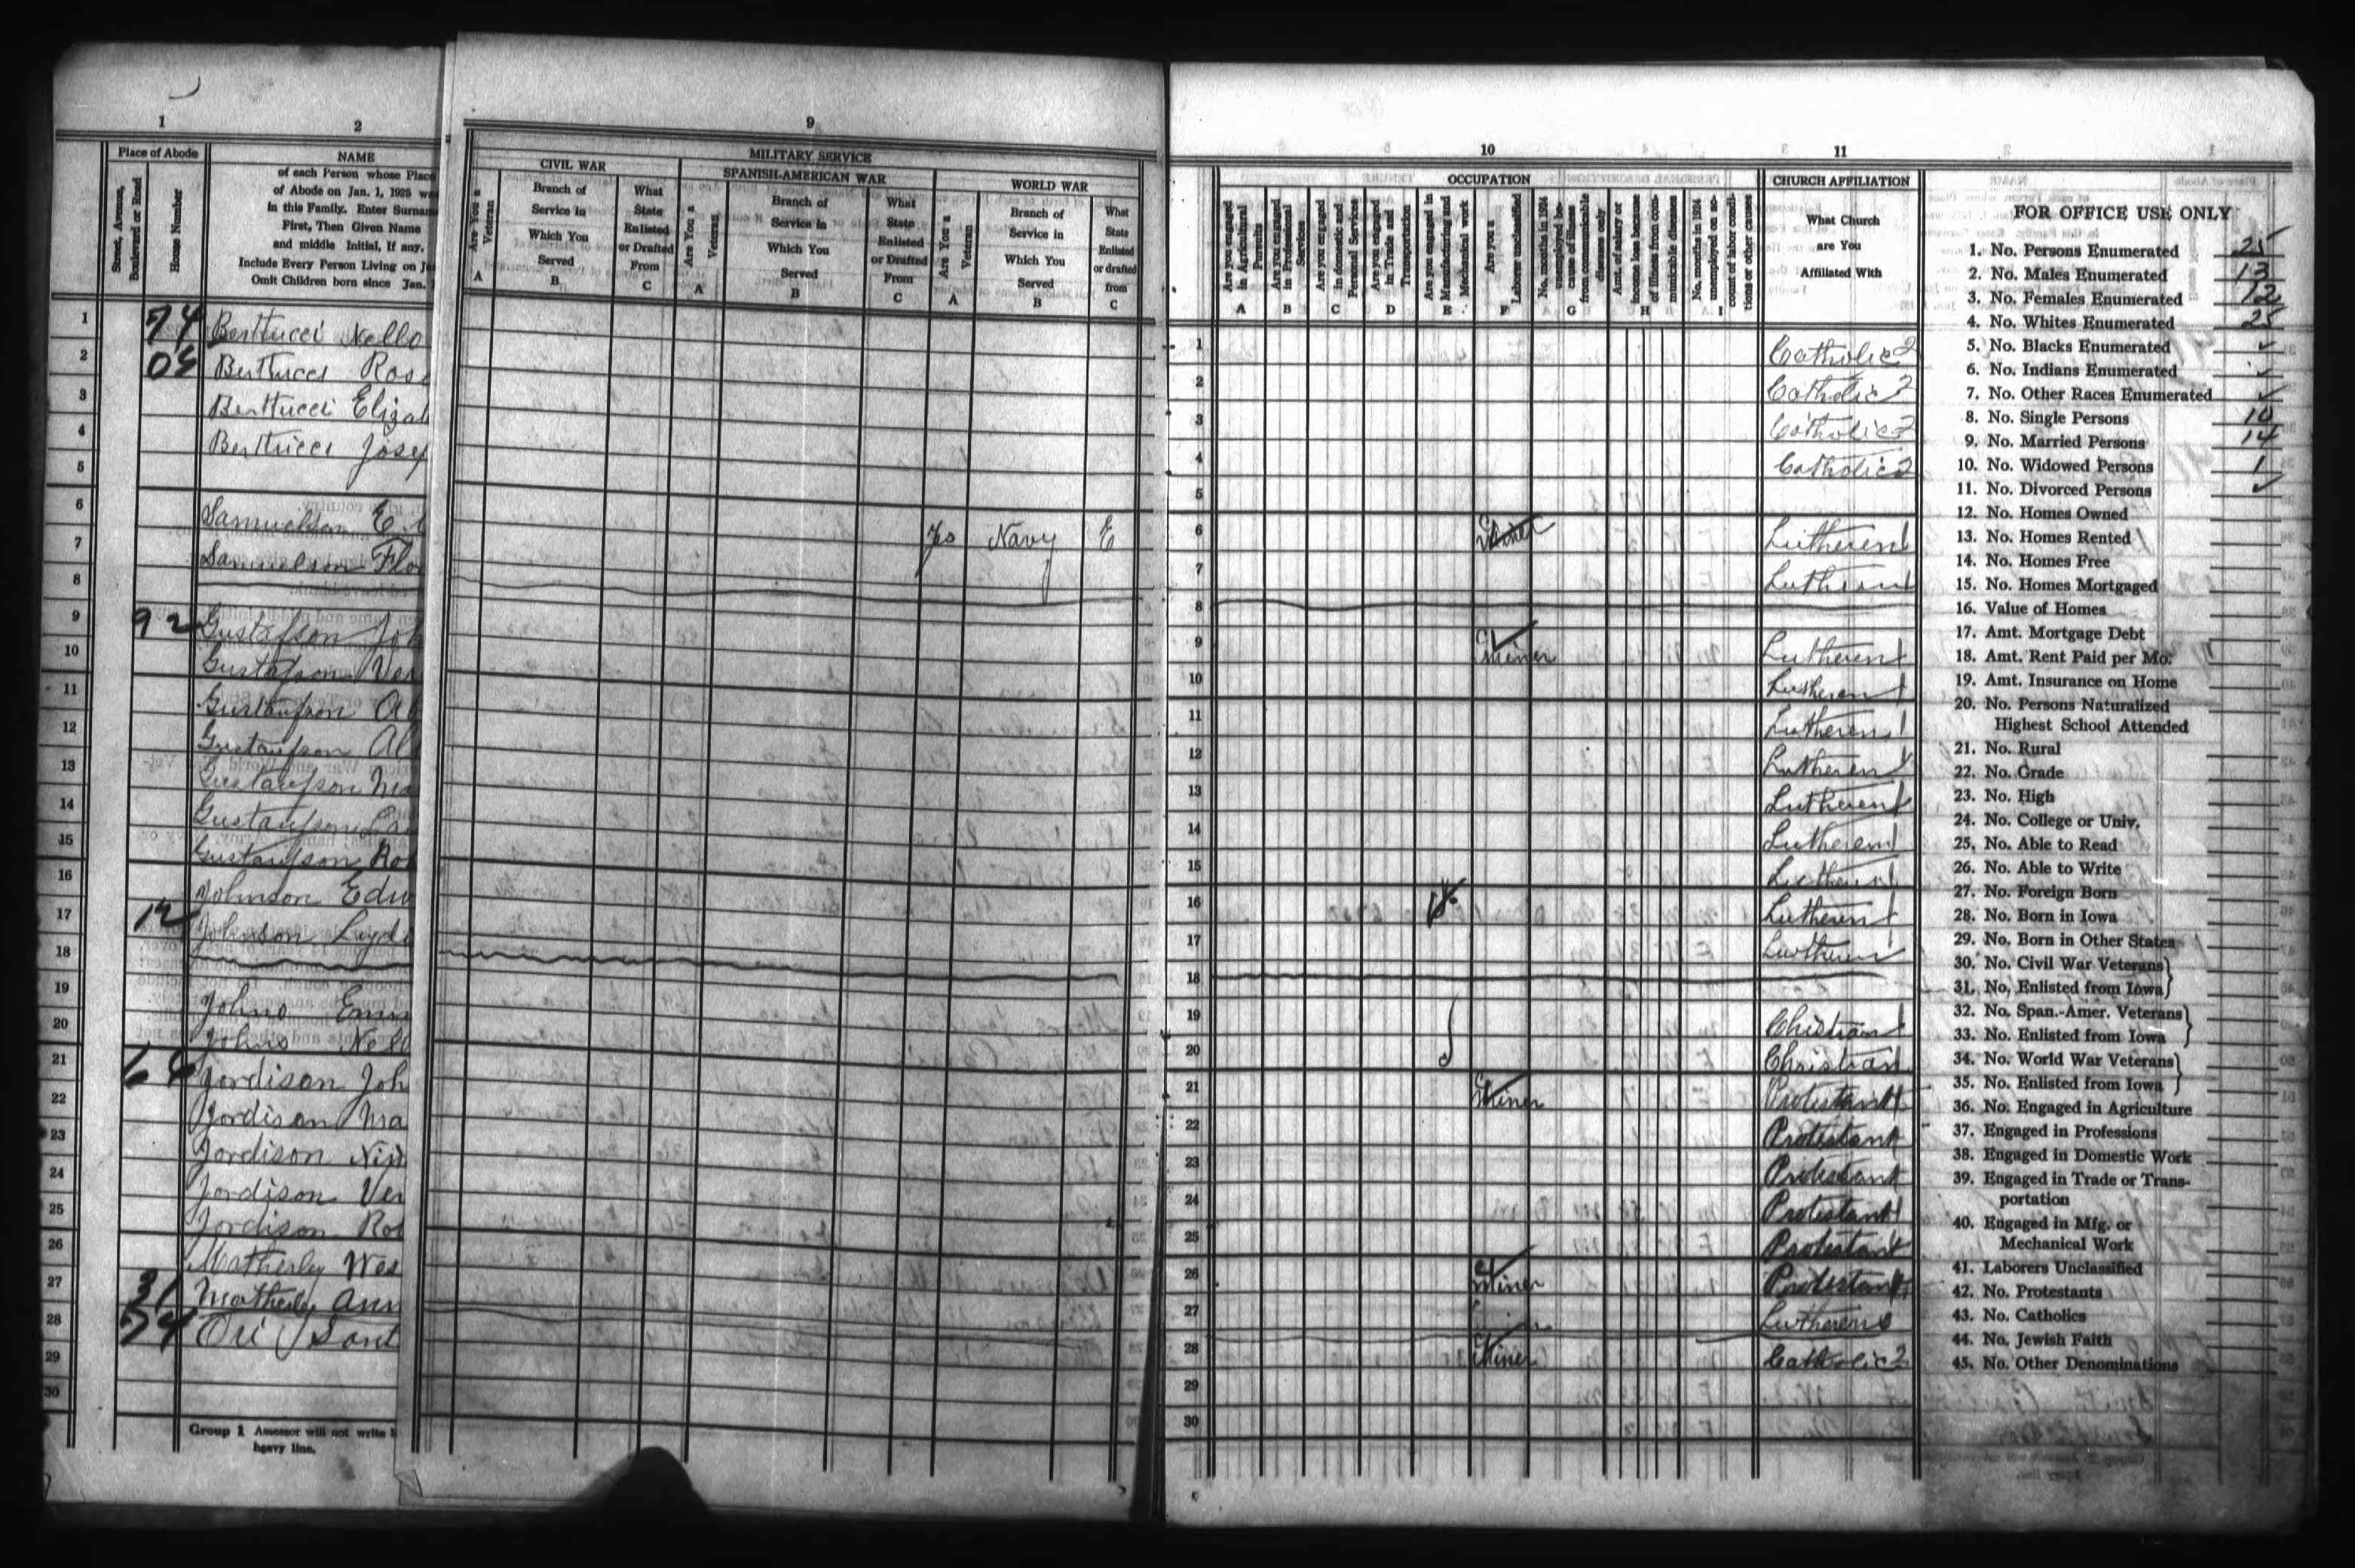 1
2
Place of Abode
Street, Avenue, Boulevard or Road
House Number
NAME
of each Person whose Place
of Abode on Jan. 1, 1925 was
in this Family. Enter Surname
First, Then Given Name
and middle Initial, if any.
Include Every Person Living on
Omit Children born since Jan.
1 74 Berttucci Nello
2 Berttucci Rose
3 Berttucci Elizab
4 Berttucci Josep
5
6 Samuelson E.
7 Samuelson Flo
8
9 92 Gustafson Joh
10 Gustafson Ver
11 Gustafson Al
12 Gustafson Al
13 Gustafson Ma
14 Gustafson
15 Gustafson Rob
16 Johnson Edw
17 12 Johnson Lyd
18
19 Johns Emm
20 Johns Nell
21 64 Jordison Joh
22 Jordison Ma
23 Jordison
24 Jordison Ver
25 Jordison Rob
26 Matherly Wes
27 31 Matherly Ann
28 74 Ori Sant
29
30
Group 1 Assessor will not write
heavy line.
9
MILITARY SERVICE
CIVIL WAR
Are You a Veteran
A
Branch of Service in Which You Served
B
What State Enlisted or Drafted From
C
SPANISH-AMERICAN WAR
Are You a Veteran
A
Branch of Service in Which You Served
B
What State Enlisted or Drafted From
C
WORLD WAR
Are You a Veteran
A
Branch of Service in Which You Served
B
What State Enlisted or drafted from
C
Yes Navy E
10
OCCUPATION
Are you engaged in Agricultural Pursuits
A
Are you engaged in Professional Services
B
Are you engaged in domestic and Personal Services
C
Are you engaged in Trade and Transportation
D
Are you engaged in Manufacturing and Mechanical work
E
Are you a Laborer unclassified
F
No. months in 1924 unemployed because of illness from communicable diseases only
G
Amt. of salary or income loss because of illness from communicable diseases
H
No. months in 1924 unemployed on account of labor conditions or other causes
I
11
CHURCH AFFILIATION
What Church
are You
Affiliated With
1 Catholic 2
2 Catholic 2
3 Catholic 2
4 Catholic 2
5
6 Miner Lutheren 1
7 Lutheren 1
8
9 Miner Lutheren 1
10 Lutheren 1
11 Lutheren 1
12 Lutheren 1
13 Lutheren 1
14 Lutheren 1
15 Lutheren 1
16 Lutheren 1
17 Lutheren 1
18
19 Christian 1
20 Christian
21 Miner Protestant 1
22 Protestant
23 Protestant
24 Protestant 1
25 Protestant
26 Miner Protestant
27 Lutheren
28 Miner Catholic 2
29
30
FOR OFFICE USE ONLY
1. No. Persons Enumerated 25
2. No. Males Enumerated 13
3. No. Females Enumerated 12
4. No. Whites Enumerated 25
5. No. Blacks Enumerated ✓
6. No. Indians Enumerated ✓
7. No. Other Races Enumerated ✓
8. No. Single Persons 10
9. No. Married Persons 14
10. No. Widowed Persons 1
11. No. Divorced Persons ✓
12. No. Homes Owned
13. No. Homes Rented
14. No. Homes Free
15. No. Homes Mortgaged
16. Value of Homes
17. Amt. Mortgage Debt
18. Amt. Rent Paid per Mo.
19. Amt. Insurance on Home
20. No. Persons Naturalized
Highest School Attended
21. No. Rural
22. No. Grade
23. No. High
24. No. College or Univ.
25. No. Able to Read
26. No. Able to Write
27. No. Foreign Born
28. No. Born in Iowa
29. No. Born in Other States
30. No. Civil War Veterans
31. No. Enlisted from Iowa
32. No. Span.-Amer. Veterans
33. No. Enlisted from Iowa
34. No. World War Veterans
35. No. Enlisted from Iowa
36. No. Engaged in Agriculture
37. Engaged in Professions
38. Engaged in Domestic Work
39. Engaged in Trade or Trans-
portation
40. Engaged in Mfg. or
Mechanical Work
41. Laborers Unclassified
42. No. Protestants
43. No. Catholics
44. No. Jewish Faith
45. No. Other Denominations